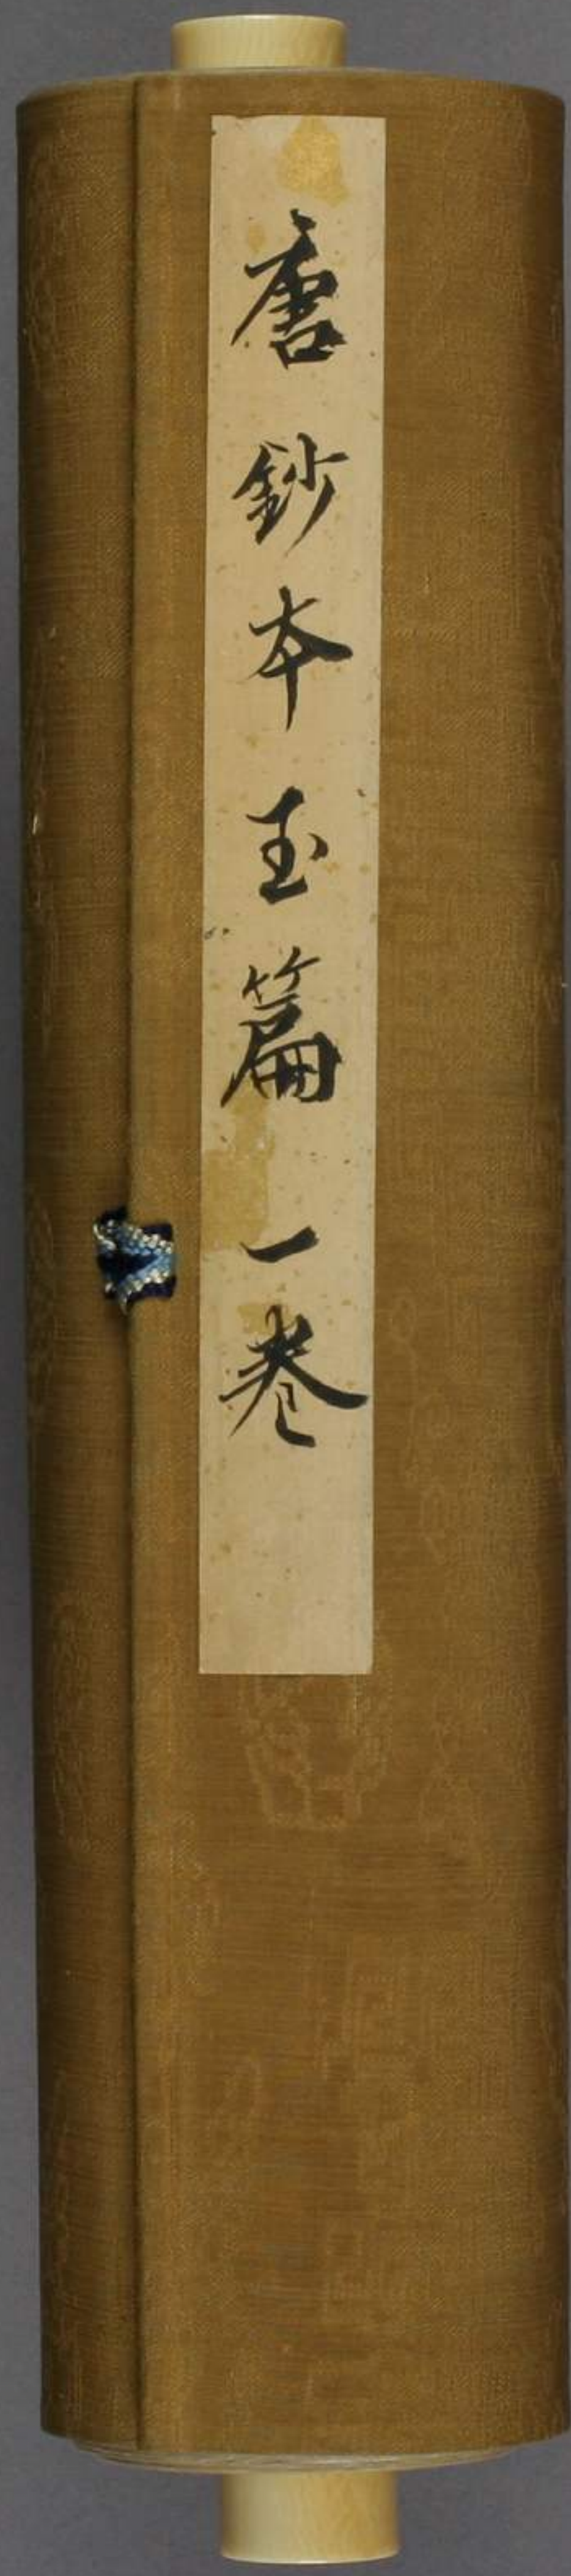 唐鈔本玉篇一卷